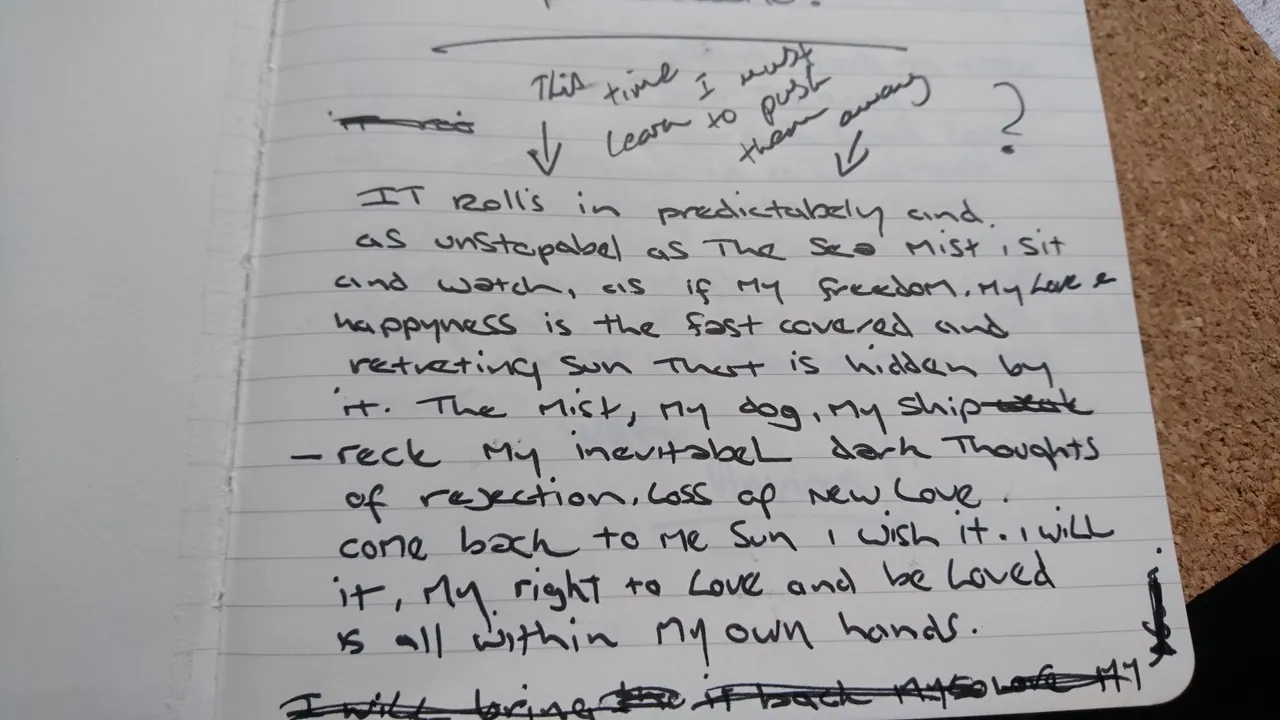 This time I must
Learn to push
them away
?
IT Rolls in predictabely and.
as unstopabel as The Sea Mist, i sit
and watch, as if My freedom, My Love &
happyness is the fast covered and
retreting Sun That is hidden by
it. The Mist, My dog, My ship
- reck My inevitabel dark Thoughts
of rejection, Loss of New Love.
come back to Me Sun i wish it. i will
it, My right to Love and be Loved
is all within My own hands.
I will bring it back My